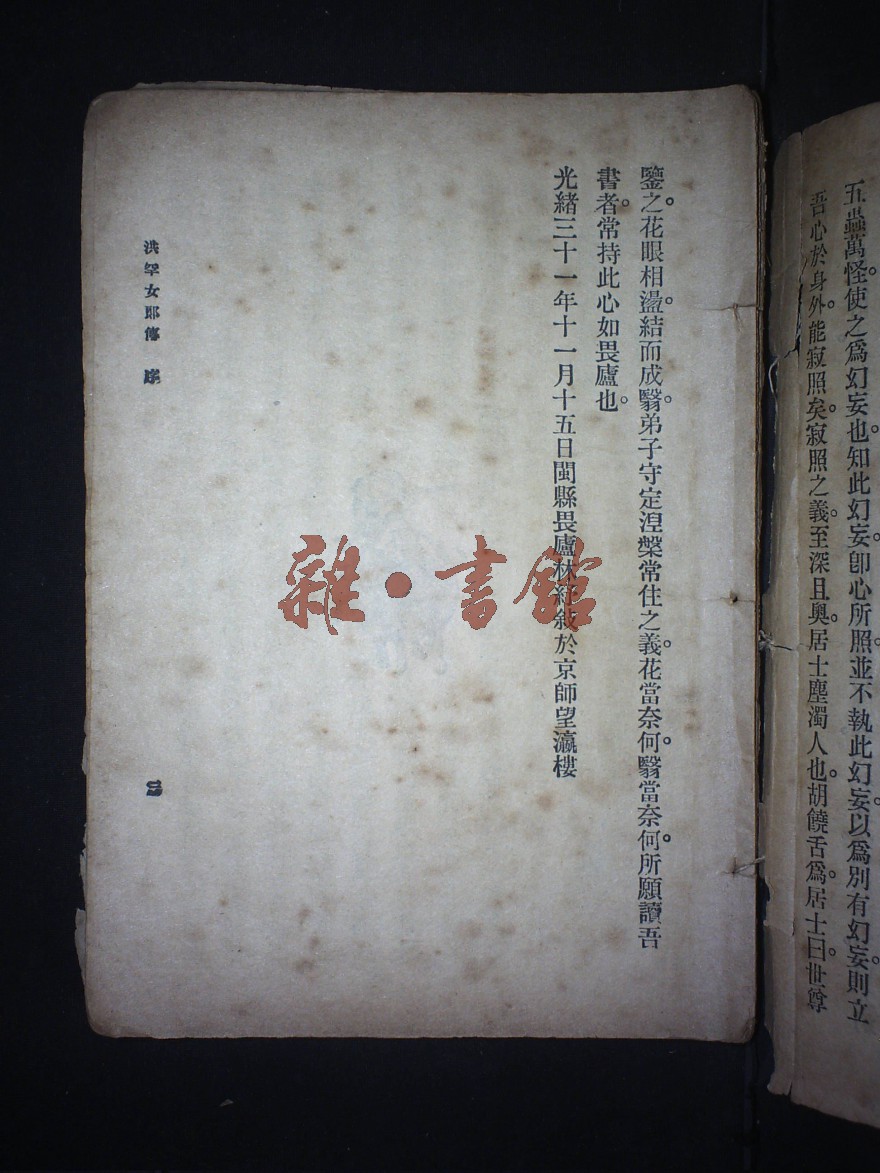 五蟲萬怪。使之爲幻妄也。知此幻妄。卽心所照。並不執此幻妄。以爲別有幻妄。則立
吾心於身外。能寂照矣。寂照之義。至深且奧。居士塵濁人也。胡饒舌爲。居士曰。世尊
鑒之。花眼相盪。結而成翳。弟子守定涅槃常住之義。花當奈何。翳當奈何。所願讀吾
書者。常持此心如畏廬也。
光緒三十一年十一月十五日閩縣畏廬林紓敘於京師望瀛樓
洪罕女郎傳 序
雜·書館